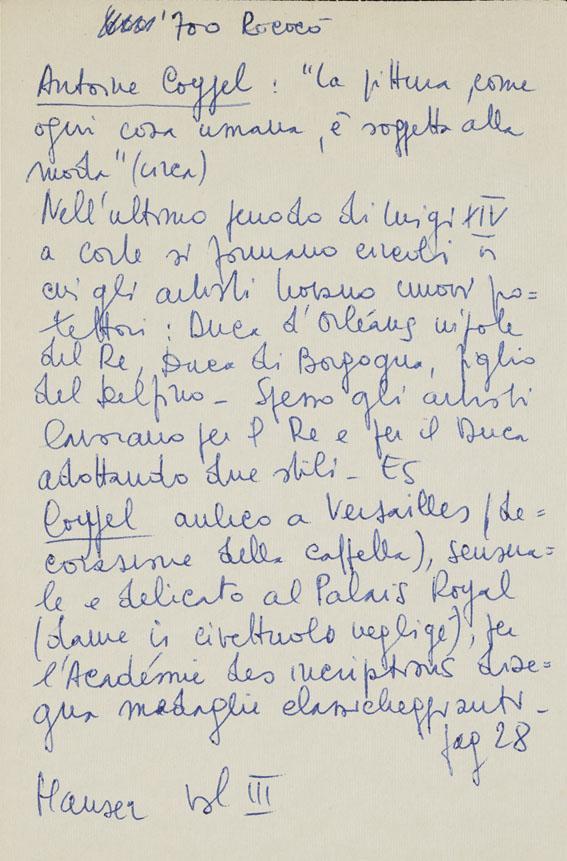 '700 Rococò
Antoine Coypel : "la pittura, come
ogni cosa umana, è soggetta alla
moda" (circa)
Nell'ultimo periodo di Luigi XIV
a corte si formano circoli in
cui gli artisti trovano nuovi pro=
tettori : Duca d'Orléans nipote
del Re, Duca di Borgogna, figlio
del Delfino - Spesso gli artisti
lavorano per il Re e per il Duca
adottando due stili - ES
Coypel aulico a Versailles (de=
corazione della cappella), sensua=
le e delicato al Palais Royal
(dame in civettuolo negligé), per
l'Académie des incriptions dise=
gna medaglie classicheggianti -
pag 28
Hauser vol III